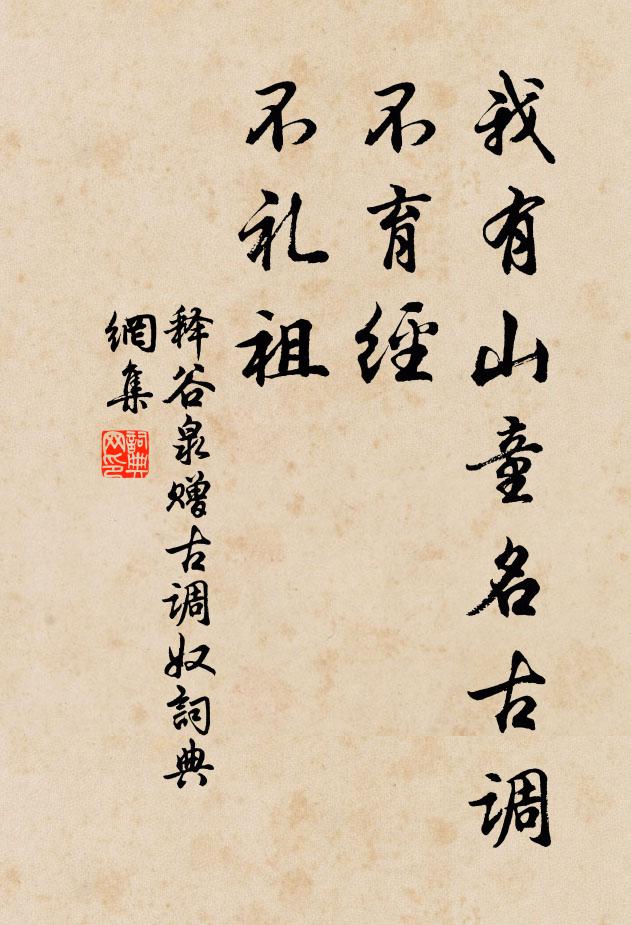 我有山童名古调
不育經
不礼祖
释谷泉赠古调奴詞典
網集
詞典网印